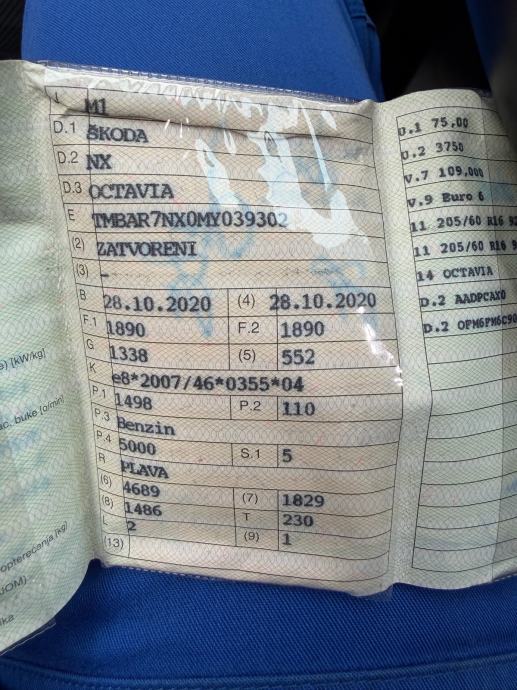 e) [kW/kg]
ac. buke [o/min]
opterećanja [kg]
J M1
D.1 ŠKODA
D.2 NX
D.3 OCTAVIA
E TMBAR7NX0MY039302
(2) ZATVORENI
(3) -
B 28.10.2020 (4) 28.10.2020
F.1 1890 F.2 1890
G 1338 (5) 552
K e8*2007/46*0355*04
P.1 1498 P.2 110
P.3 Benzin
P.4 5000 S.1 5
R PLAVA
(6) 4689 (7) 1829
(8) 1486 T 230
L 2 (9) 1
(13)
U.1 75,00
U.2 3750
V.7 109,000
V.9 Euro 6
11 205/60 R16 92
11 205/60 R16
14 OCTAVIA
D.2 AADPCAX0
D.2